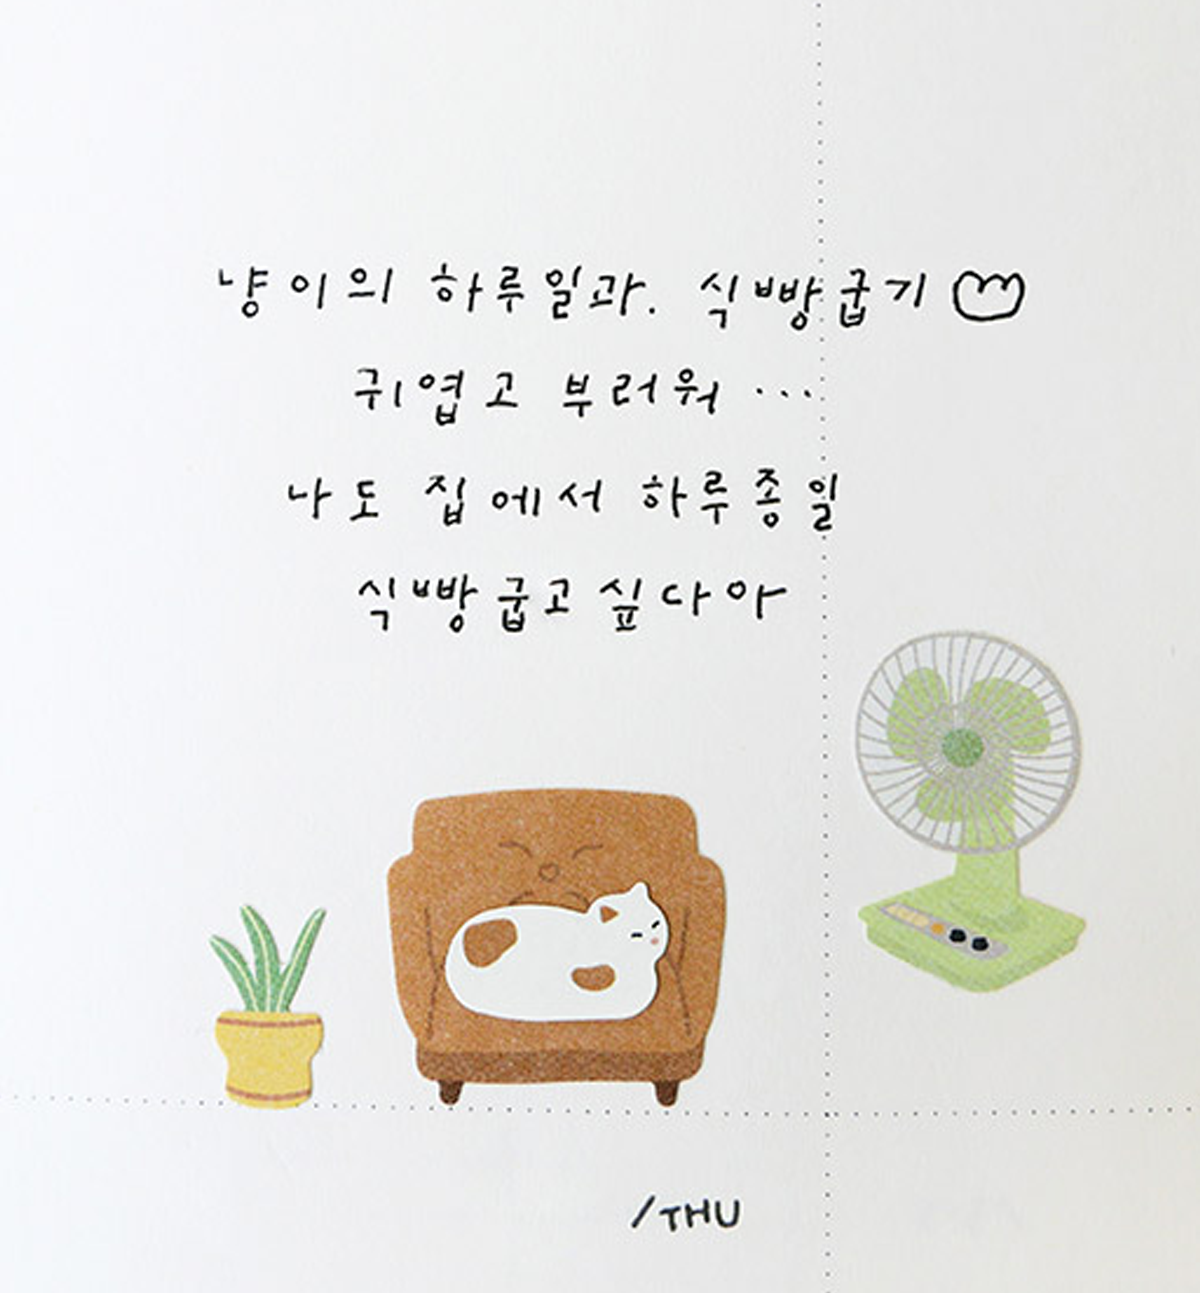 냥이의 하루일과. 식빵굽기
귀엽고 부러워 ...
나도 집에서 하루종일
식빵 굽고 싶다아
/THU